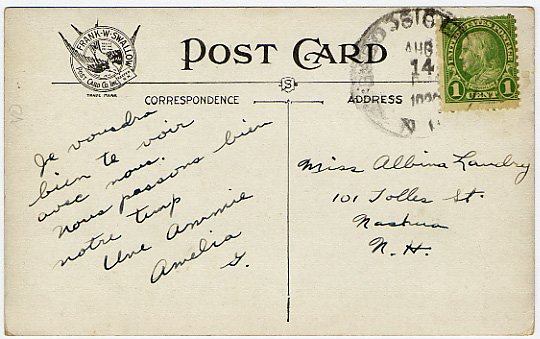 FRANK·W·SWALLOW
POST CARD CO. INC.
TRADE MARK
POST CARD
CORRESPONDENCE
S
ADDRESS
AUG
14
UNITED STATES POSTAGE
1 CENT 1
Je voudra
bien te voir
avec nous.
Nous passons bien
notre temp
Une Ammie
Amelia
Miss Albina Landry
101 Tolles St.
Nashua
N. H.